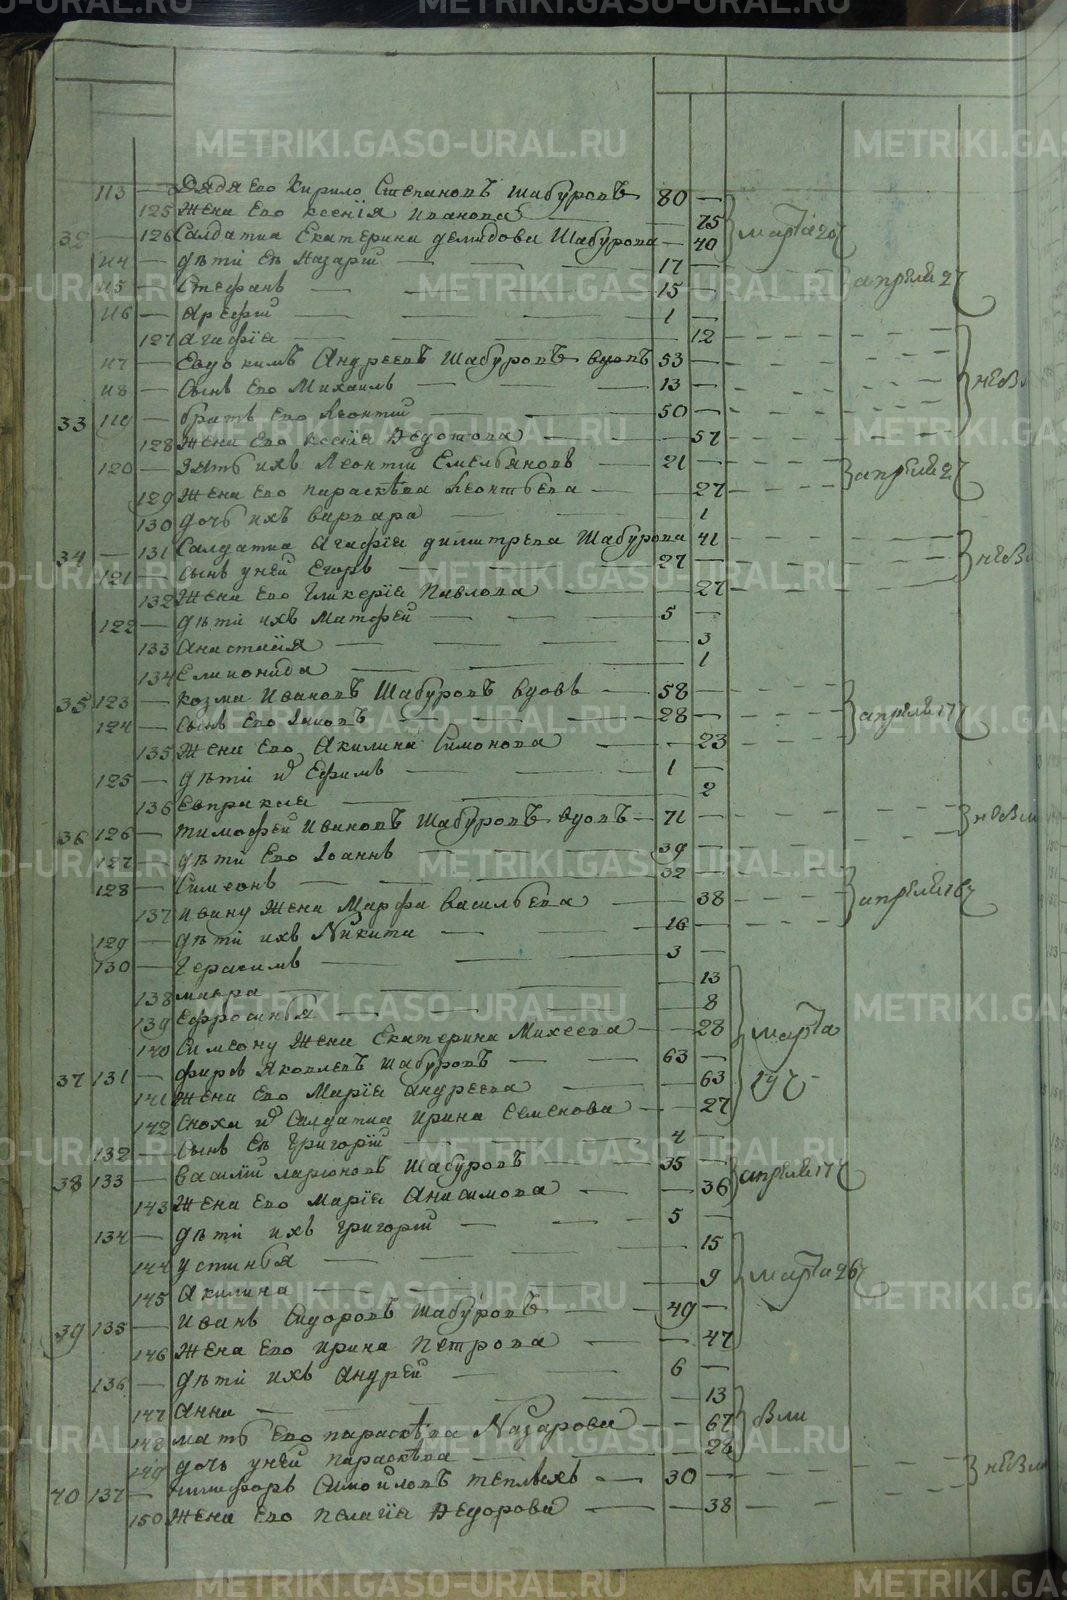 113 — Дядя Его Кирило Степановъ Шабуровъ 80 —
125 Жена Его Ксенiя Иванова — 75
32 — 126 Салдатка Екатерина Демидова Шабурова — 40 марта 20
114 — дѣти Ея Назарiй 17 —
115 — Стефанъ 15 — апрѣля 27
116 — Арефiй 1 —
127 Агафiя — 12
117 — Евдокимъ Андреевъ Шабуровъ вдовъ 53 —
118 — Сынъ Его Михаилъ 13 — небыл
33 119 — братъ Его Леонтiй 50 —
128 Жена Его Ксенiя Федотова — 57
120 — Зять ихъ Леонтiй Емельяновъ 21 — апрѣля 27
129 Жена Его Параскѣва Леонтьева — 27
130 дочь ихъ Варвара — 1
34 — 131 Салдатка Агафiя Димитрева Шабурова 41
121 — Сынъ у ней Егоръ 27 — небы
132 Жена Его Гликерiя Павлова — 27
122 — дѣти ихъ Матфей 5 —
133 Анастасiя — 3
134 — 1
35 123 — Козма Ивановъ Шабуровъ вдовъ 58 —
124 — Сынъ Его Iаковъ 28 — апрѣля 17
135 Жена Его Акилина Симонова — 23
125 — дѣти их Ефимъ 1 —
136 Евпраксiя — 2
36 126 — Тимофей Ивановъ Шабуровъ вдовъ 71 — небы
127 — дѣти Его Iоаннъ 39 —
128 — Симеонъ 32 —
137 Ивану Жена Марфа Васильева — 38 апрѣля 16
129 — дѣти ихъ Никита 16 —
130 — Герасимъ 3 —
138 мавра — 13
139 Ефросинья — 8
140 Симеону Жена Екатерина Михеева — 28 марта
37 131 — Фирсъ Яковлевъ Шабуровъ 63 —
141 Жена Его Марiя Андреева — 63
142 Сноха их Салдатка Ирина Семенова — 27
132 — Сынъ Ея Григорiй 4
38 133 — Василiй Ларионовъ Шабуровъ 35 —
143 Жена Его Марiя Анисимова — 36 апрѣля 17
134 — дѣти ихъ Григорiй 5 —
144 Устинья — 15
145 Акилина — 9 марта 26
39 135 — Иванъ Сидоровъ Шабуровъ 49 —
146 Жена Его Ирина Петрова — 47
136 — дѣти ихъ Андрей 6 —
147 Анна — 13
148 мать Его Параскѣва Назарова — 67 были
149 дочь у ней Параскѣва — 26
40 137 — Никифоръ Самойловъ Теплыхъ 30 — небы
150 Жена Его Пелагiя Федорова — 38
METRIKI.GASO-URAL.RU